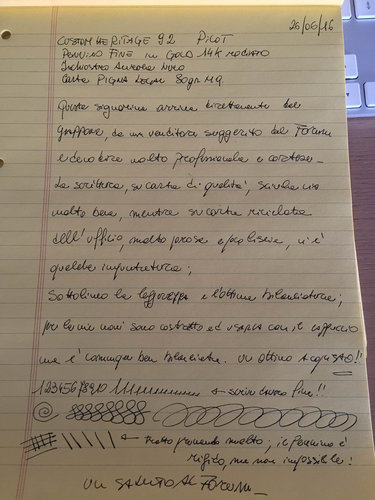 26/06/16
CUSTOM HERITAGE 92 PILOT
PENNINO FINE in GOLD 14K RODIATO
Inchiostro Aurora Nero
Carta PIGNA LEGAL 80gr MQ
Questa signorina arriva direttamente dal
giappone, da un venditore suggerito dal Forum
e devo dire molto professionale e cortese -
La scrittura, su carta di qualità, scivola via
molto bene, mentre su carta riciclata
dell'ufficio, molto porosa e poco liscia, vi è
qualche impuntatura;
Sottolineo la leggerezza e l'ottima bilanciatura;
per le mie mani sono costretto ad usarla con il cappuccio
ma è comunque ben bilanciata. Un ottimo ACQUISTO!!
1234567890 ← scrive davvero fine!!
← tratto premendo molto; il pennino è
rigido, ma non impossibile!
UN SALUTO AL FORUM